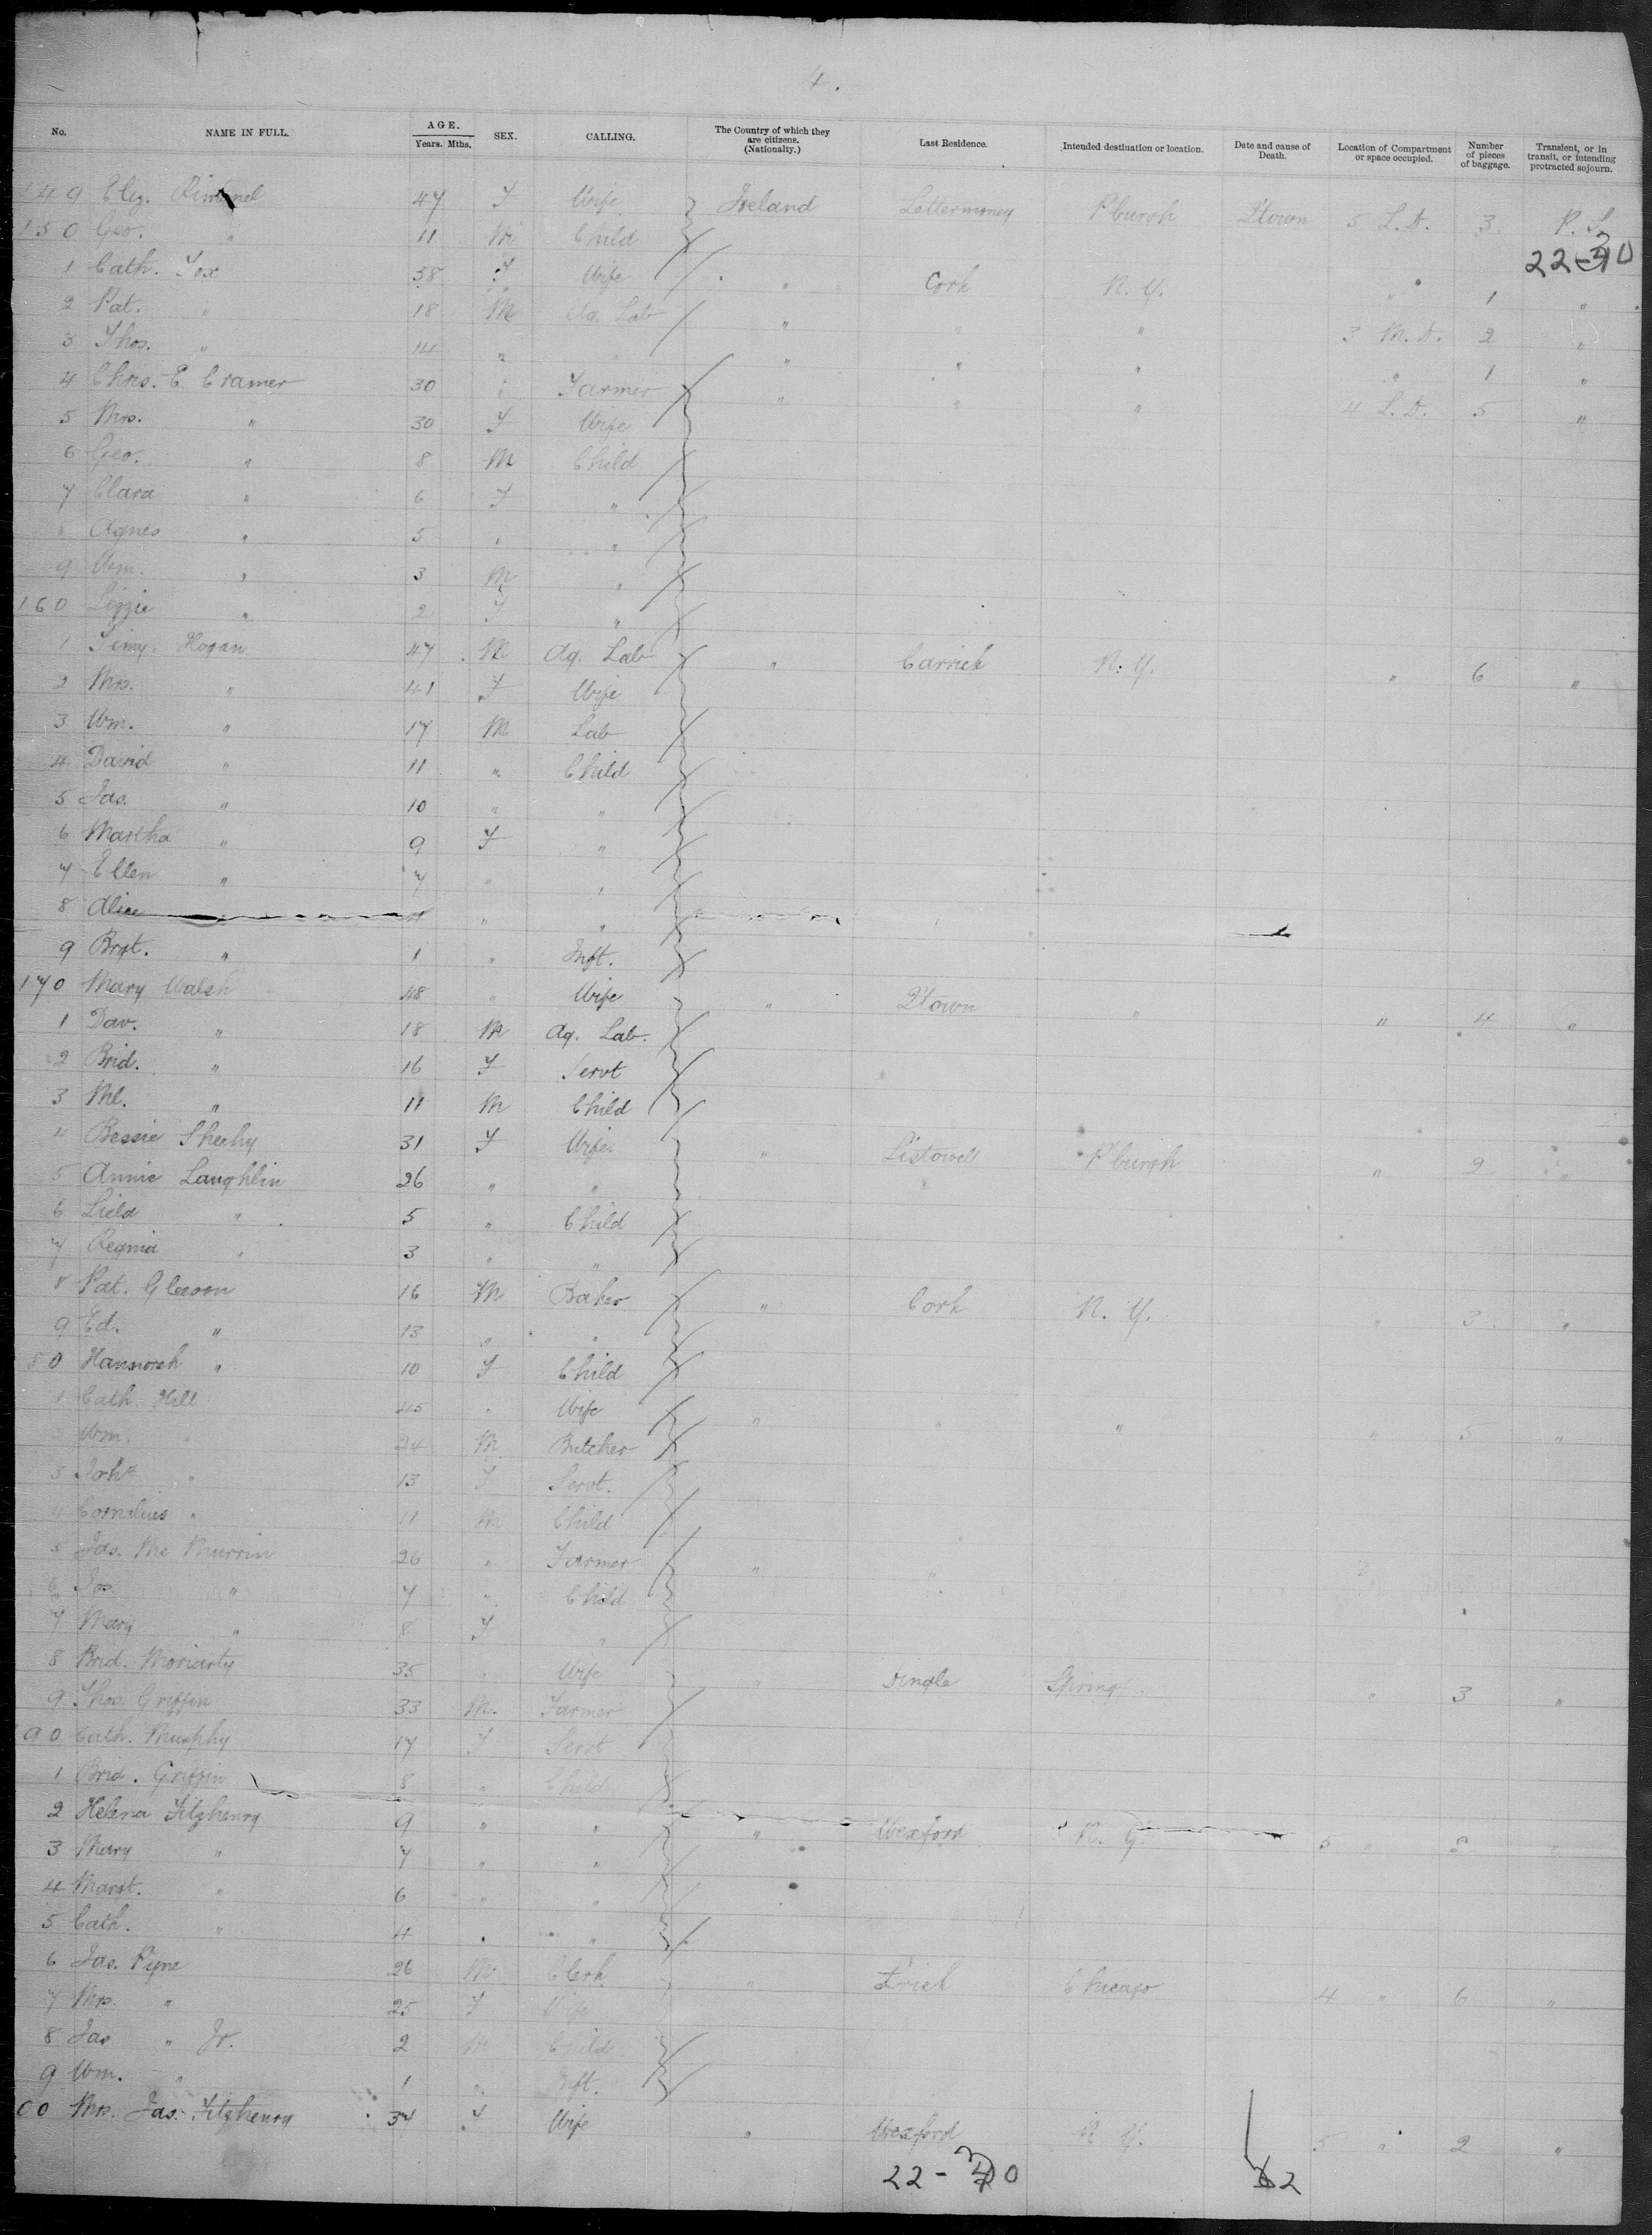 4.
No. NAME IN FULL. AGE. Years. Mths. SEX. CALLING. The Country of which they are citizens. (Nationalty.) Last Residence. Intended destination or location. Date and cause of Death. Location of Compartment or space occupied. Number of pieces of baggage. Transient, or in transit, or intending protracted sojourn.
149 Eliz. 47 F Wife Ireland Lettermoney P'burgh Q'town 5 L.D. 3 P.S.
150 Geo. " 11 M Child
22-30
1 Cath. Fox 58 F Wife " Cork N.Y. " 1 "
2 Pat. " 18 M Ag. Lab " " " 3 M.D. 2 "
3 Thos. " 14 " " " " " " 1 "
4 Chris. E. Cramer 30 " Farmer " " " 4 L.D. 5 "
5 Mrs. " 30 F Wife
6 Geo. " 8 M Child
7 Clara " 6 F "
8 Agnes " 5 " "
9 Wm. " 3 M "
160 Lizzie " 2 F "
1 Timy. Horan 47 M Ag. Lab " Carrick N.Y. " 6 "
2 Mrs. " 41 F Wife
3 Wm. " 17 M Lab
4 David " 11 " Child
5 Jas. " 10 " "
6 Martha " 9 F "
7 Ellen " 7 " "
8 Alice 4 " "
9 Brgt. " 1 " Inft.
170 Mary Walsh 48 " Wife " Q'town " " 4 "
1 Dav. " 18 M Ag. Lab.
2 Brid. " 16 F Servt
3 Ml. " 11 M Child
4 Bessie Sheehy 31 F Wife " Listowel P'burgh " 2 "
5 Annie Laughlin 26 " "
6 Lield " 5 " Child
7 Regnia " 3 " "
8 Pat. Gleeson 16 M Baker " Cork N.Y. " 3 "
9 Ed. " 13 " "
80 Hannorah " 10 F Child
1 Cath. Hill 45 " Wife " " " " 5 "
2 Wm. " 24 M Butcher
3 Joha " 13 F Servt.
4 Cornelius " 11 M Child
5 Jas. Mc Murrin 26 " Farmer " "
6 Jos. " 7 " Child
7 Mary " 8 F "
8 Brid. Moriarty 35 " Wife " Dingle Springf. " 3 "
9 Thos. Griffin 33 M. Farmer
90 Cath. Murphy 17 F Servt
1 Brid. Griffin 8 " Child
2 Helena Fitzhenry 9 " " " Wexford N.Y. 5 "
3 Mary " 7 " "
4 Margt. " 6 " "
5 Cath. " 4 " "
6 Jas. Pyne 26 M. Clerk " L'rick Chicago 4 " 6 "
7 Mrs. " 25 F Wife
8 Jas " Jr. 2 M Child
9 Wm. " 1 " Inft.
00 Mrs. Jas. Fitzhenry 34 F Wife " Wexford N.Y. 5 " 2 "
22-30